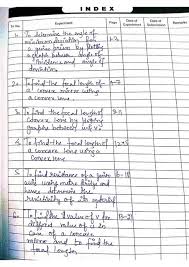 INDEX
Sr. No. Experiment Page Date of Experiment Date of Submission Remarks
1. To determine the angle of
minimum deviation for
a given prism by plotting
a graph between angle of
incidence and angle of
deviation
2. To find the focal length of
a convex mirror using a
convex lens
3. To find the focal length of
convex lens by plotting
graphs between u, v
4. To find the focal length of
a concave lens using a
convex lens
5. To find resistance of a given
wire using metre bridge and
hence determine the
resistivity of its material
6. To find the value of v for
different value of u in
case of a concave
mirror and to find the
focal length